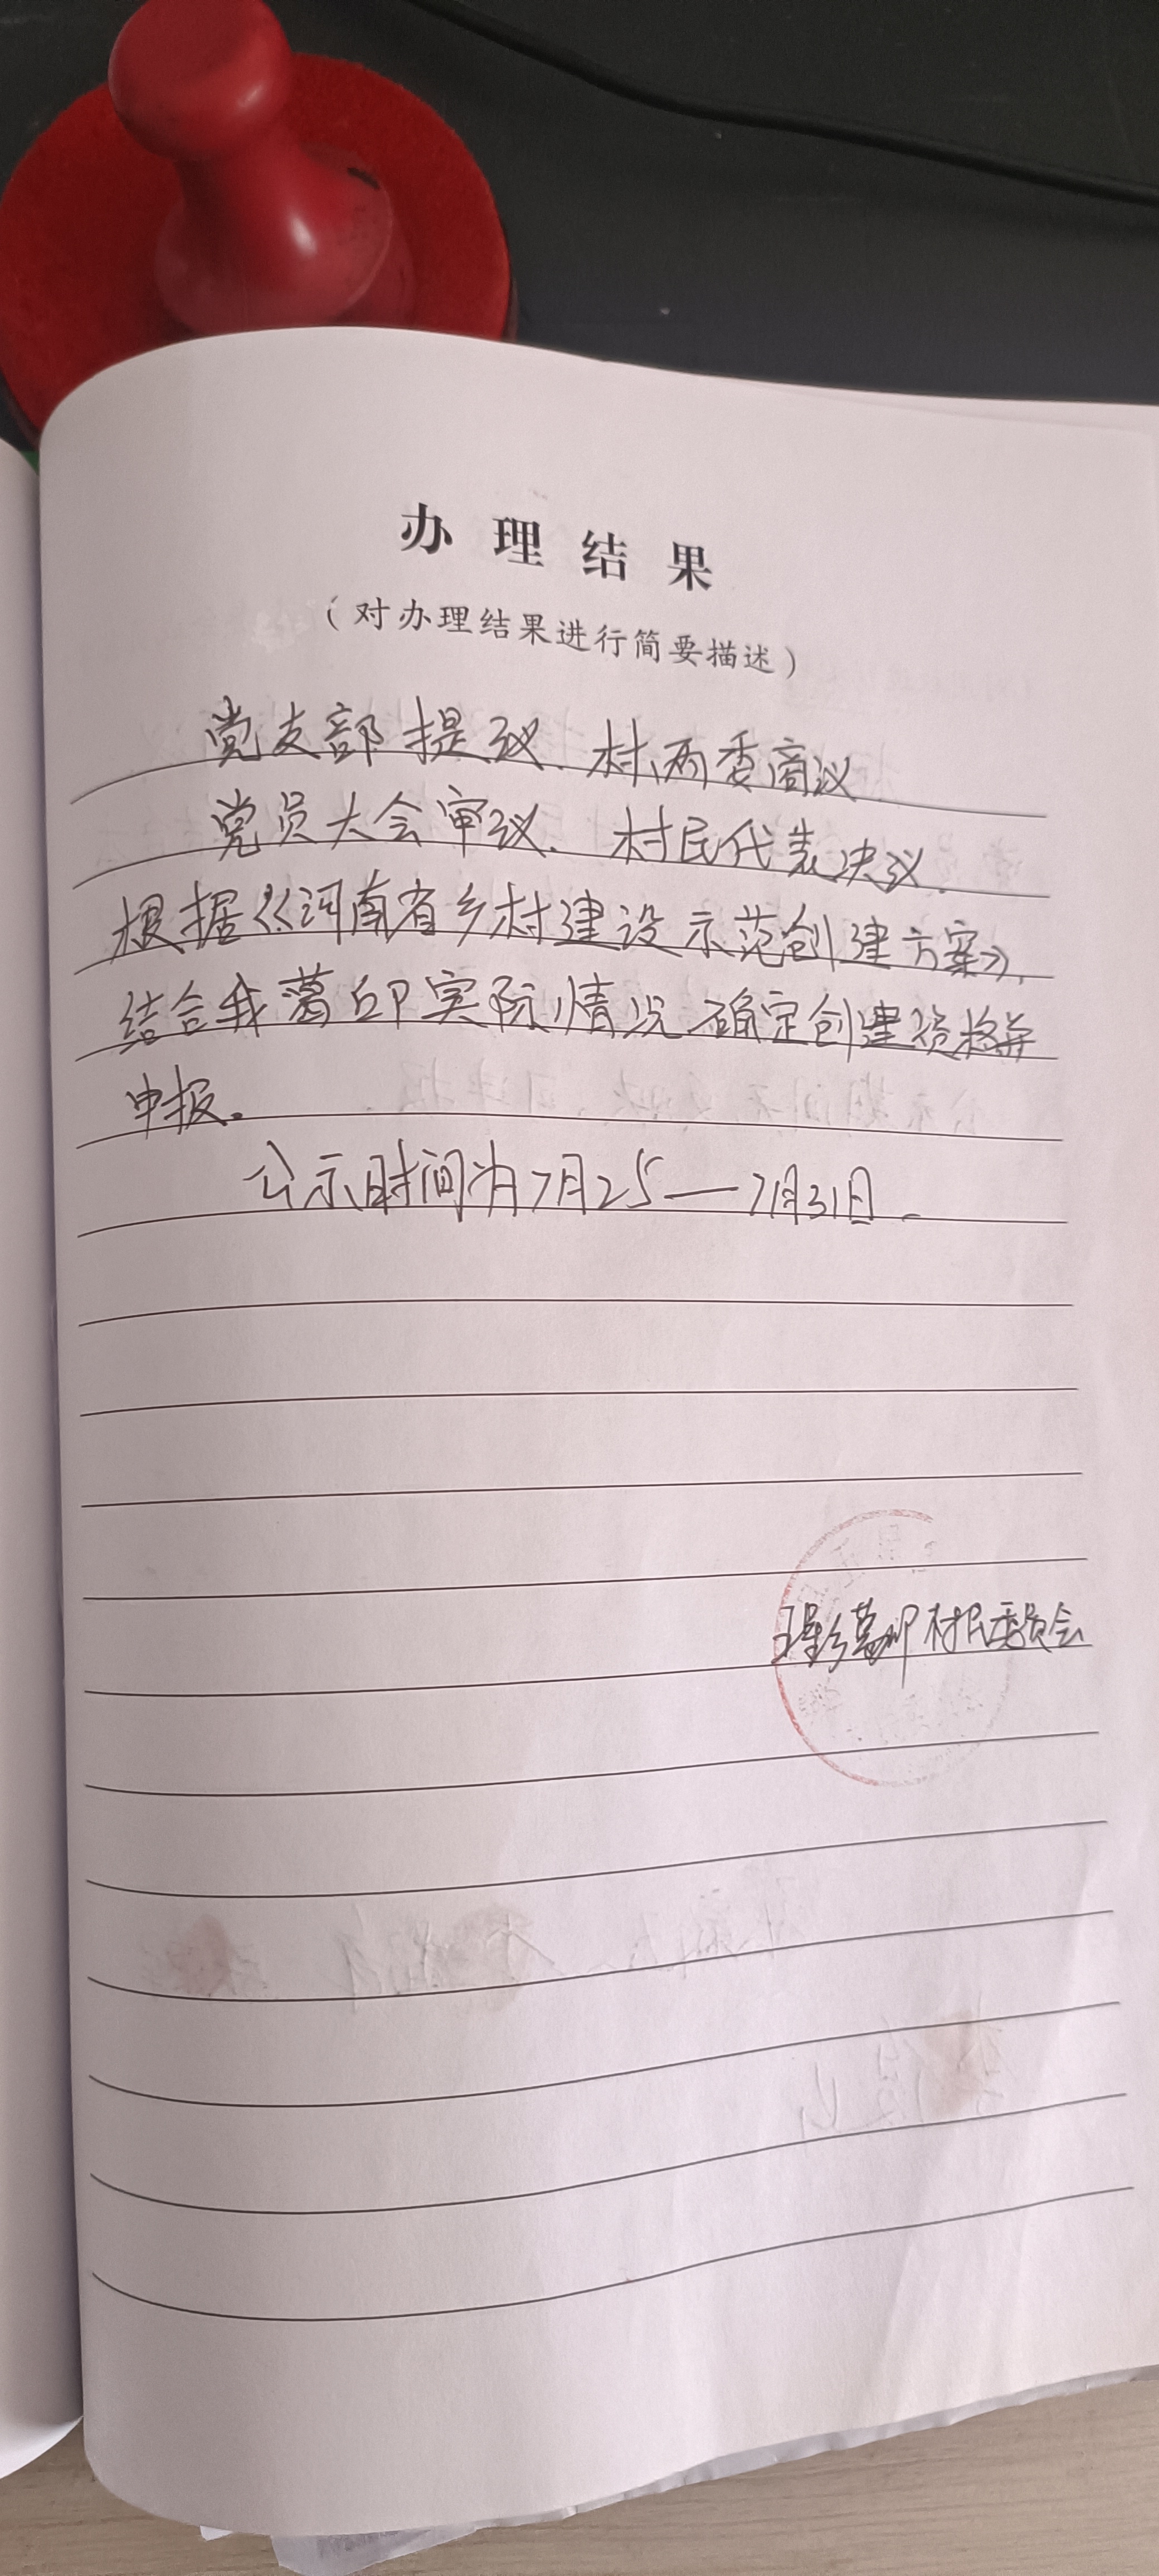 办理结果
（对办理结果进行简要描述）
党支部提议、村两委商议
党员大会审议、村民代表决议、
根据《河南省乡村建设示范创建方案》，
结合我葛邱实际情况确定创建资格并
申报。
公示时间为7月25—7月31日。
葛邱村民委员会